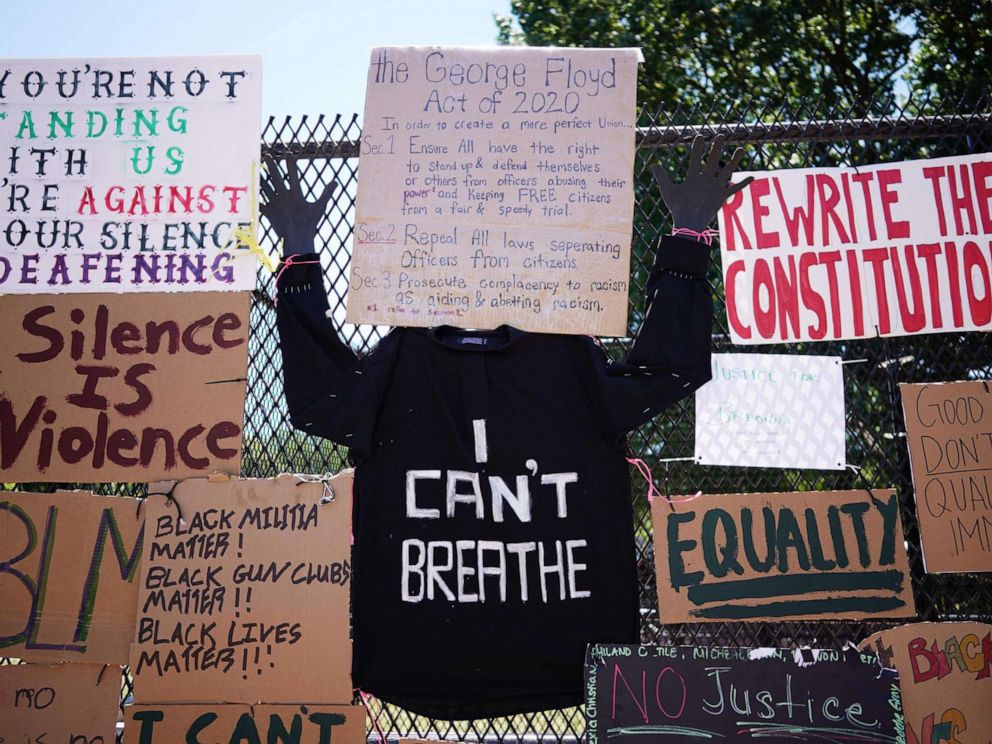 YOU'RE NOT
TANDING
WITH US
'RE AGAINST
OUR SILENCE
DEAFENING
Silence
IS
Violence
BLM
BLACK MILITIA
MATTER!
BLACK GUN CLUBS
MATTER!!
BLACK LIVES
MATTER!!!
NO
I CAN'T
the George Floyd
Act of 2020
In order to create a more perfect Union...
Sec.1 Ensure All have the right
to stand up & defend themselves
or others from officers abusing their
power¹ and keeping FREE citizens
from a fair & speedy trial.
Sec.2 Repeal All laws seperating
Officers from citizens.
Sec.3 Prosecute complacency to racism
as aiding & abetting racism.
*1 refer to Section 2
I
CAN'T
BREATHE
REWRITE THE
CONSTITUTION
JUSTICE FOR
BREONNA
GOOD
DON'T
QUAL
IMM
EQUALITY
NO Justice
BLACK